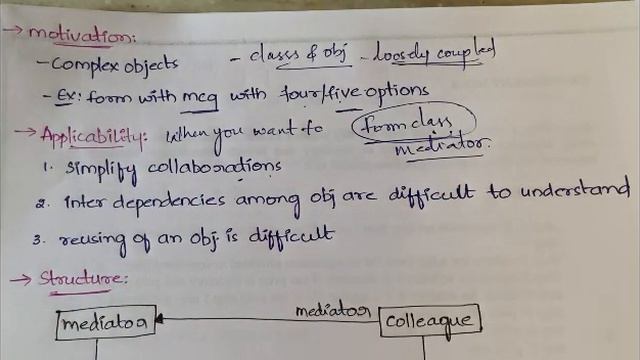 → motivation:
- Complex objects - class & obj - loosely coupled
- Ex: form with mcq with four/five options
→ Applicability: When you want to form class
mediator.
1. Simplify collaborations
2. inter dependencies among obj are difficult to understand
3. reusing of an obj. is difficult
→ Structure:
mediator mediator colleague